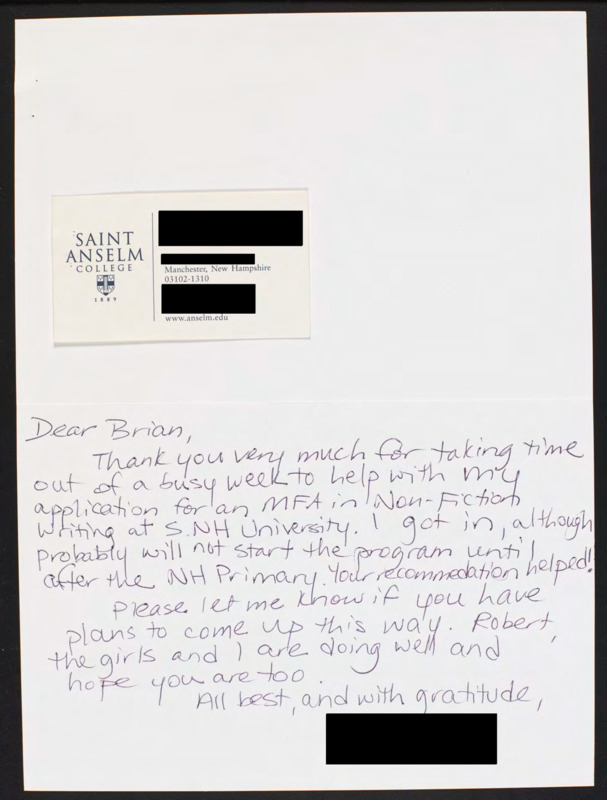 SAINT
ANSELM
COLLEGE
1889
Manchester, New Hampshire
03102-1310
www.anselm.edu
Dear Brian,
Thank you very much for taking time
out of a busy week to help with my
application for an MFA in Non-Fiction
Writing at S.NH University. I got in, although
probably will not start the program until
after the NH Primary. Your recommedation helped!
Please let me know if you have
plans to come up this way. Robert,
the girls and I are doing well and
hope you are too.
All best, and with gratitude,